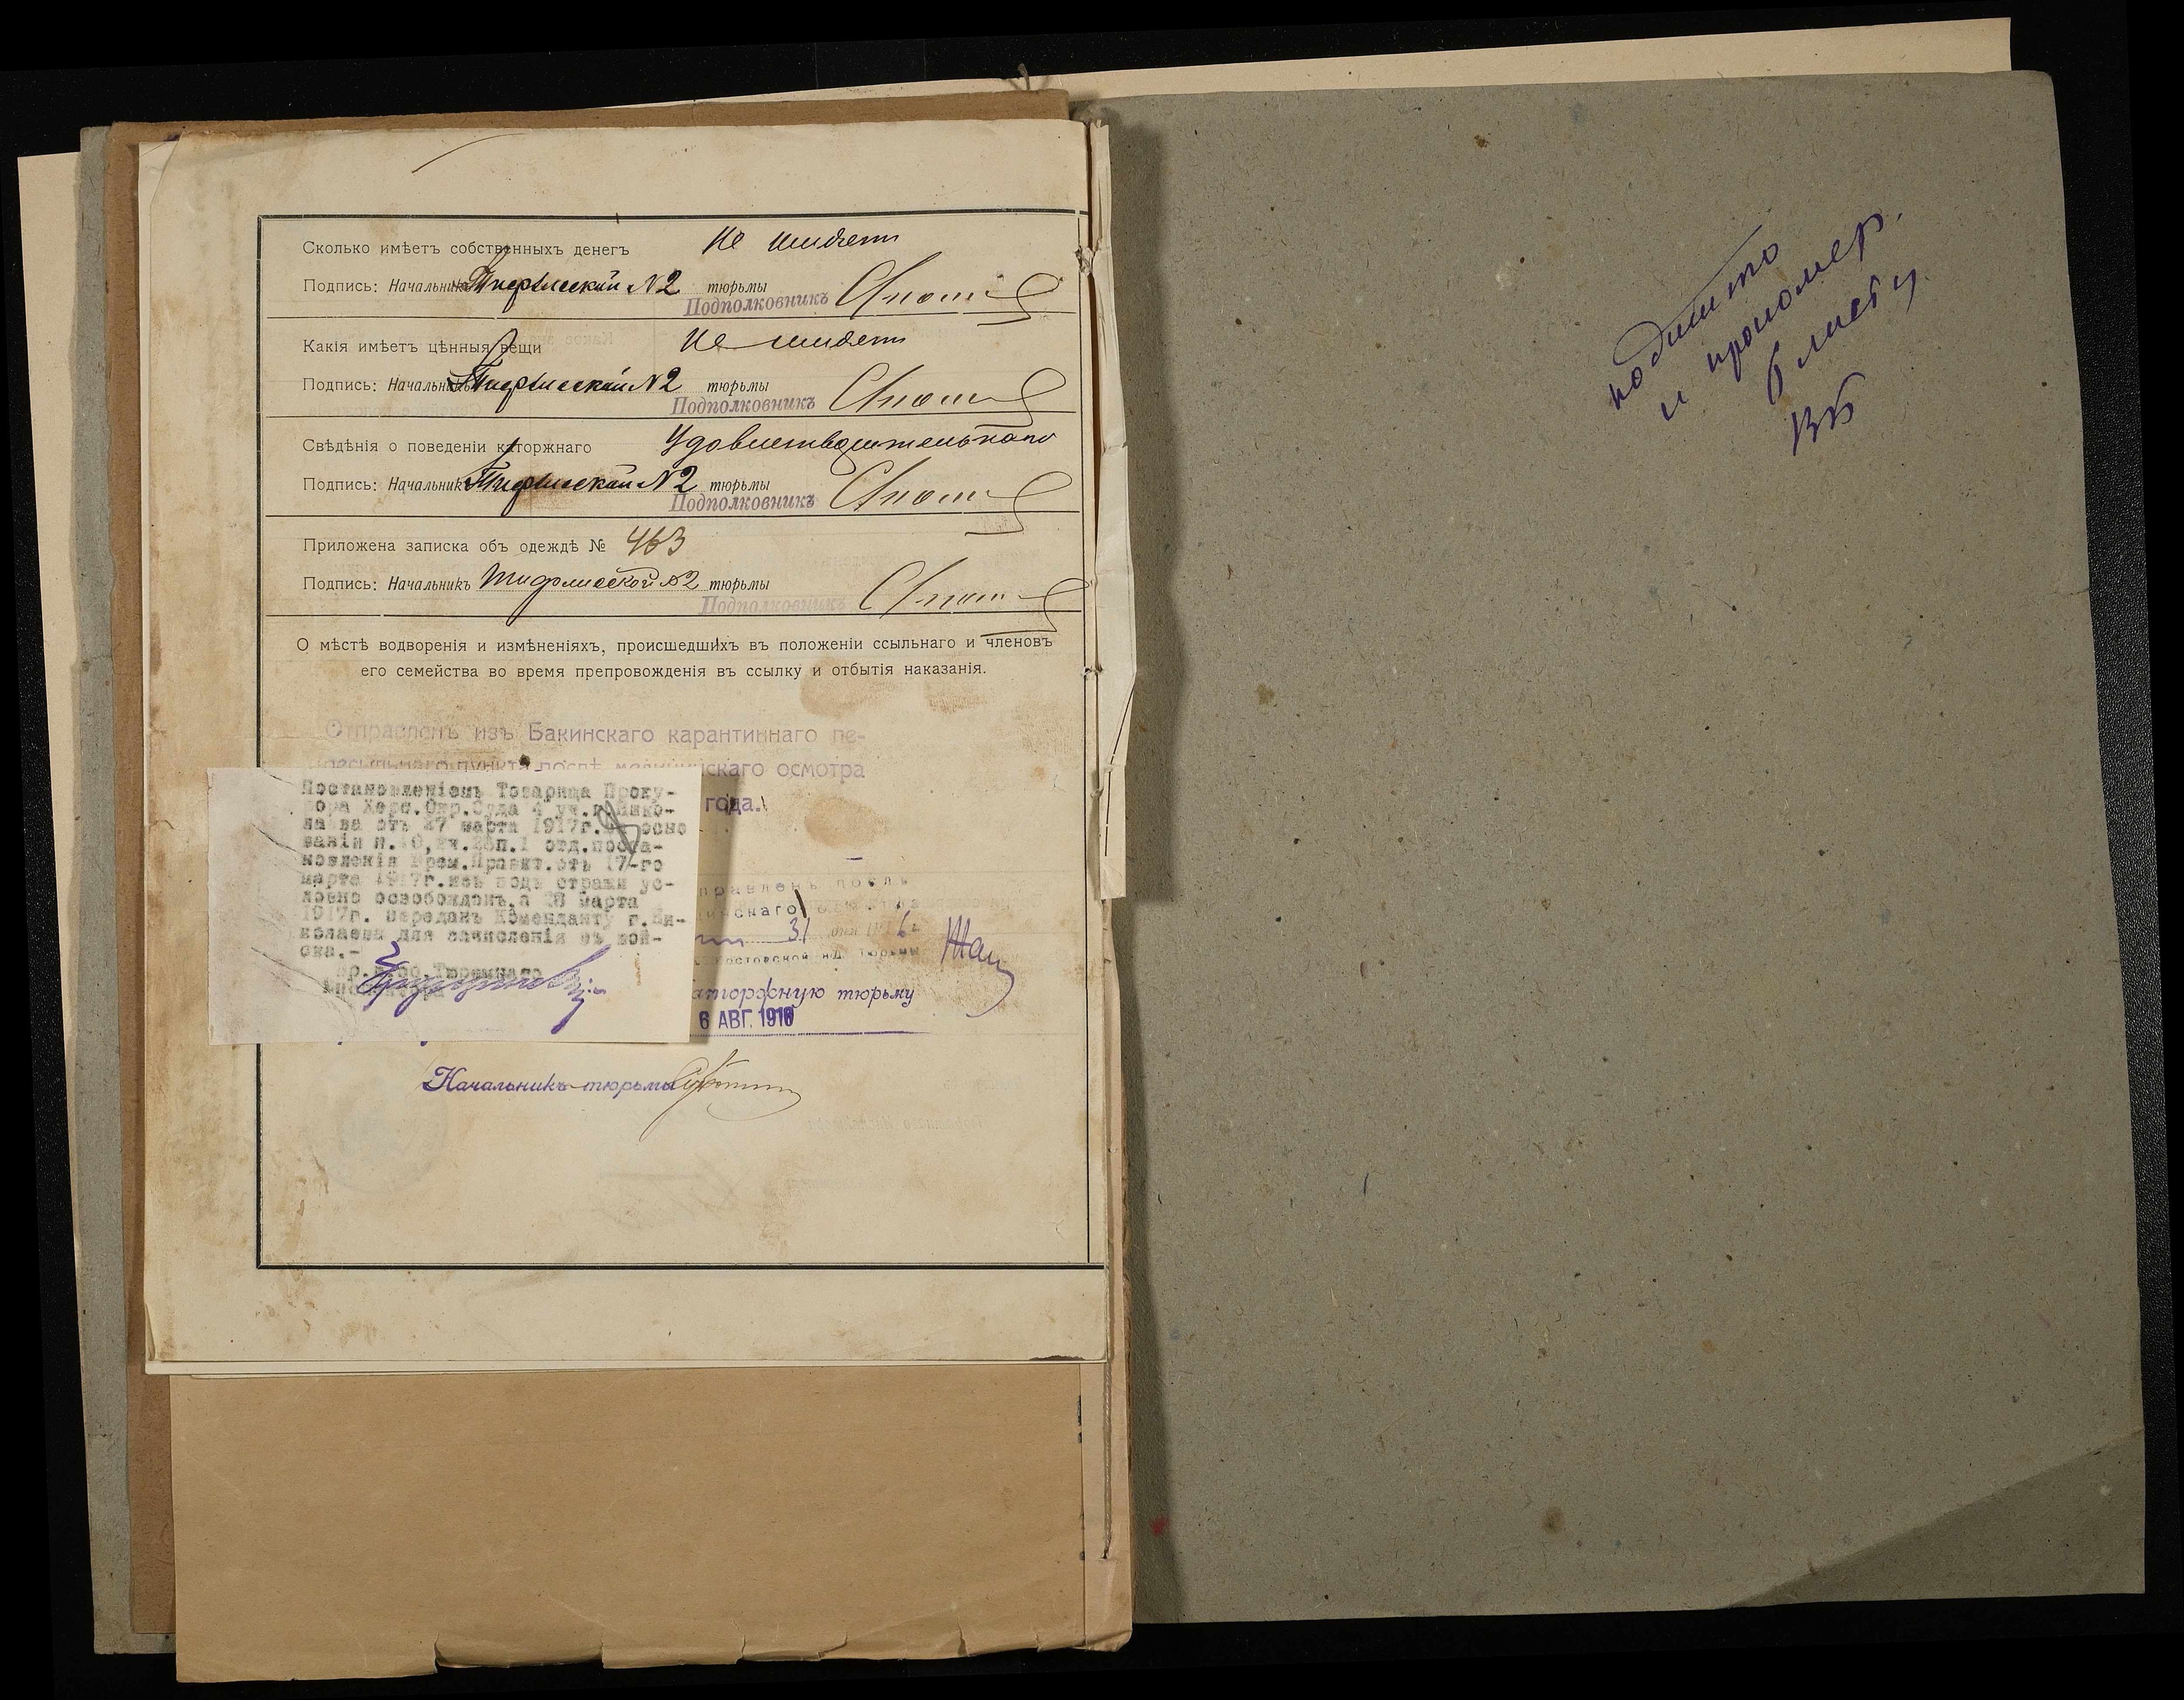 Сколько имѣетъ собственныхъ денегъ Не имѣетъ
Подпись: Начальникъ Тифлисской №2 тюрьмы
Подполковникъ
Какія имѣетъ цѣнныя вещи Не имѣетъ
Подпись: Начальникъ Тифлисской №2 тюрьмы
Подполковникъ
Свѣдѣнія о поведеніи каторжнаго Удовлетворительнаго
Подпись: Начальникъ Тифлисской №2 тюрьмы
Подполковникъ
Приложена записка объ одеждѣ № 463
Подпись: Начальникъ Тифлисской №2 тюрьмы
Подполковникъ
О мѣстѣ водворенія и измѣненіяхъ, происшедшихъ въ положеніи ссыльнаго и членовъ
его семейства во время препровожденія въ ссылку и отбытія наказанія.
Отправленъ изъ Бакинскаго карантиннаго пе-
ресыльнаго пункта послѣ медицинскаго осмотра
года.
Постановленіемъ Товарища Проку-
рора Херс.Окр.Суда 4 уч.г.Нико-
лаева отъ 27 марта 1917г. осно
ваніи п. отд.поста-
новленія Врем.Правит.отъ 17-го
марта 1917г.изъ подъ стражи ус-
ловно освобожденъ,а 28 марта
1917г. переданъ Коменданту г.Ни-
колаева для зачисленія въ вой-
ска.-
Вр.и.об.Тюремнаго
Инспектора
правленъ послѣ
инскаго осмотра
31 дня 1916 г.
Ростовской н/Д тюрьмы
аторжную тюрьму
6 АВГ. 1916
Начальникъ тюрьмы
подшито
и прономер.
6 листу
ВБ